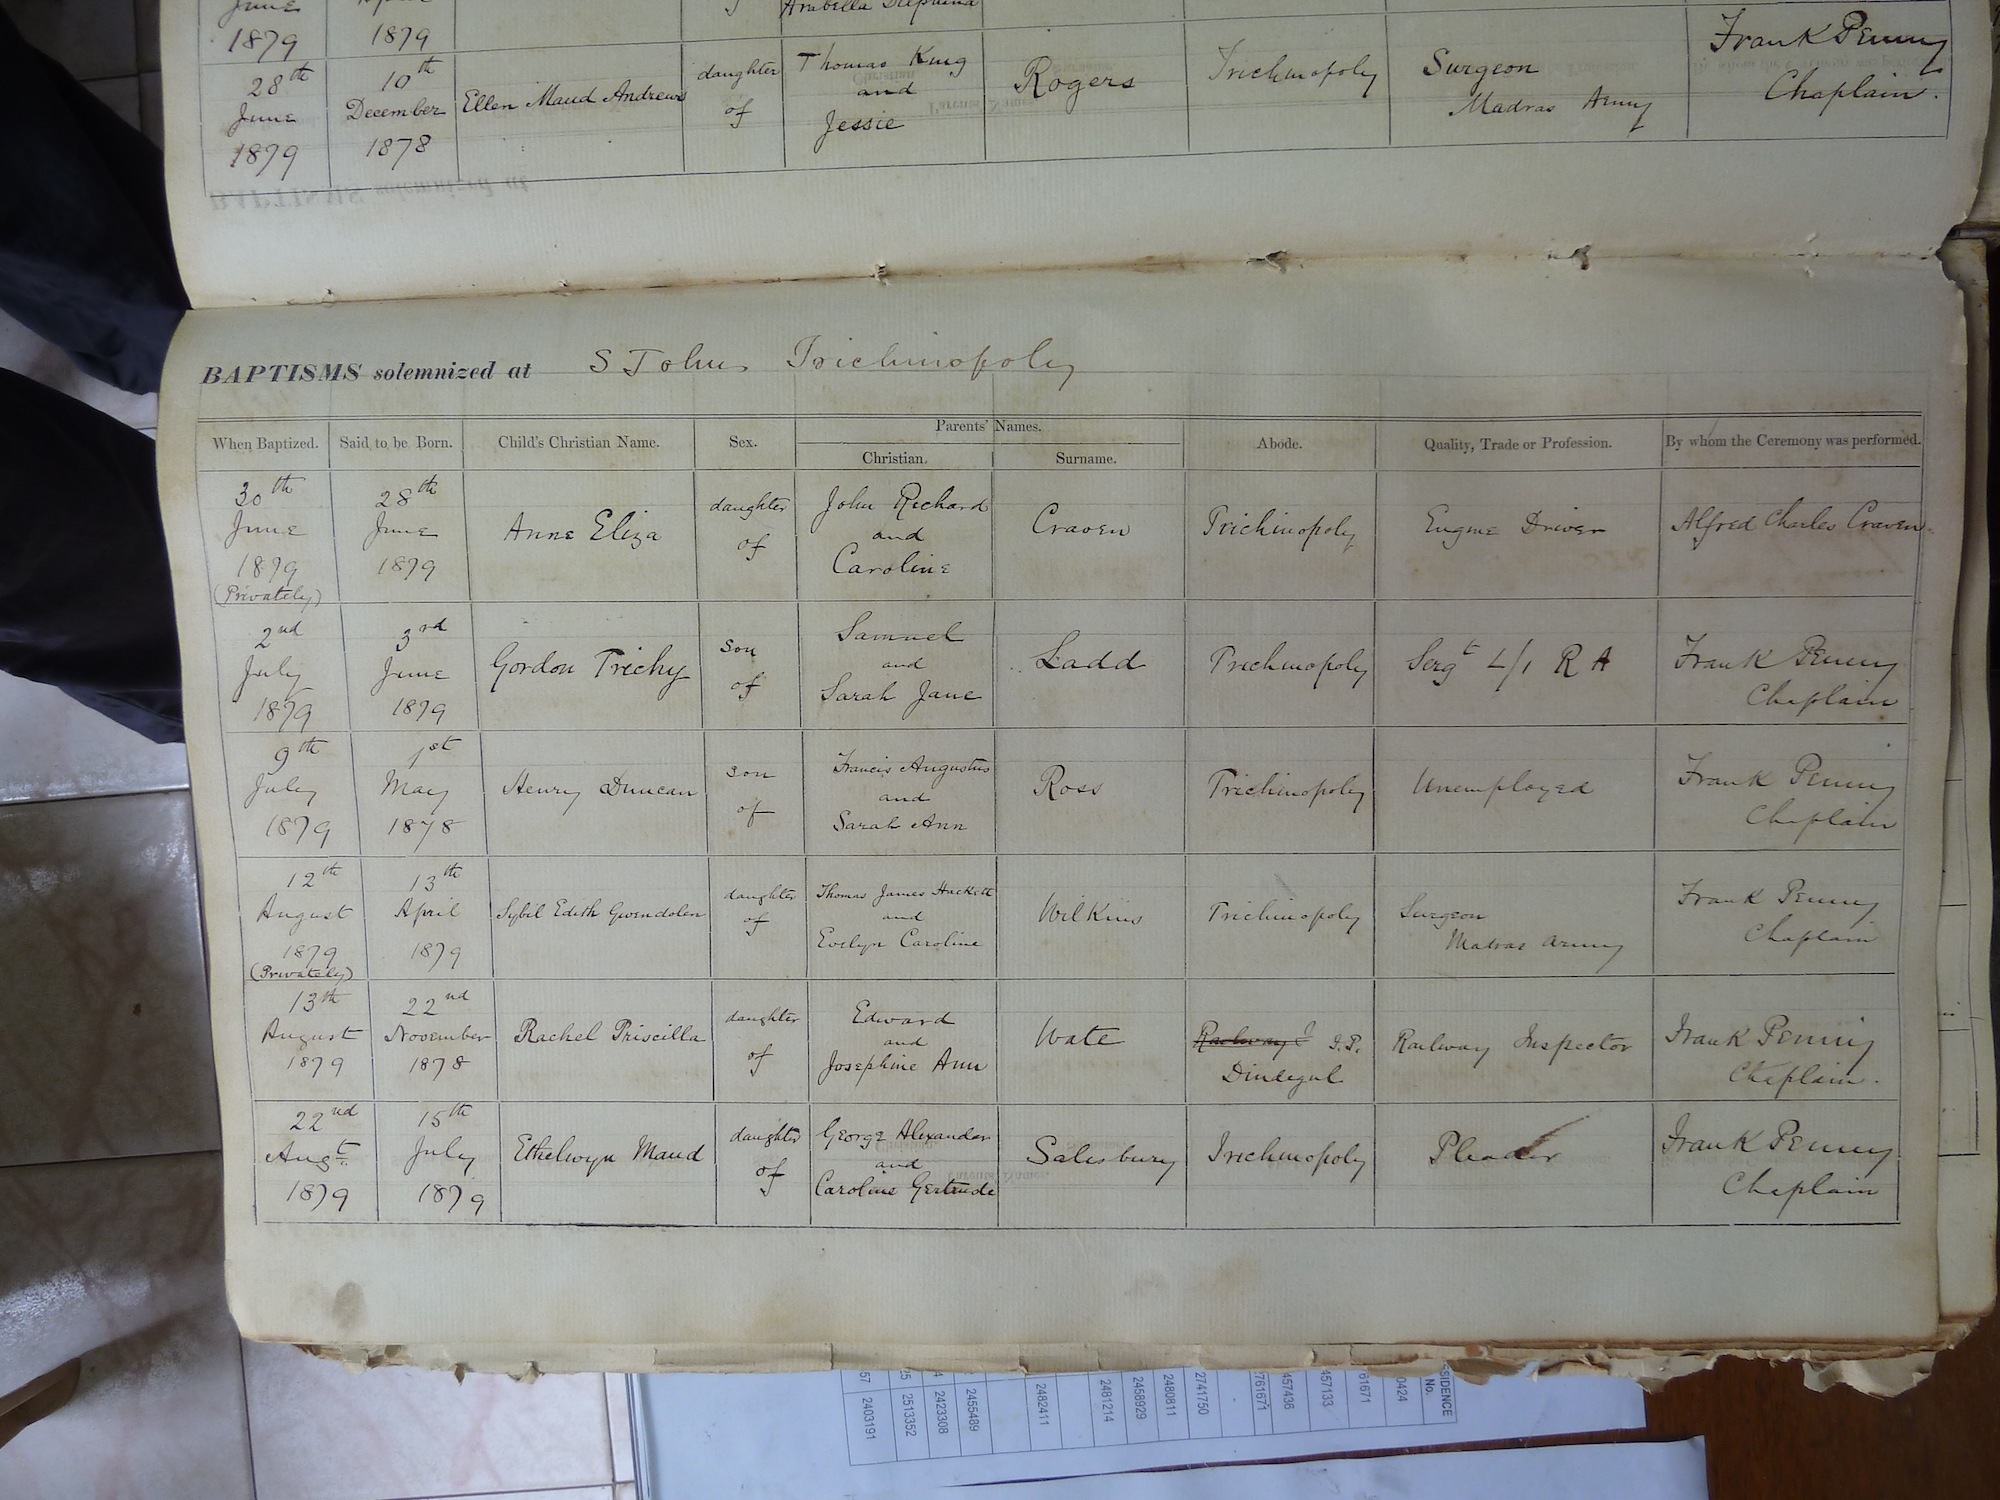 June
Arabella
1879 1879 Frank Penny
28th 10th daughter Thomas King Trichinopoly Surgeon Chaplain.
June December Ellen Maud Andrews of and Rogers Madras Army
1879 1878 Jessie
BAPTISMS solemnized at S Johns Trichinopoly
When Baptized. Said to be Born. Child's Christian Name. Sex. Parents' Names. Abode. Quality, Trade or Profession. By whom the Ceremony was performed.
Christian. Surname.
30th 28th daughter John Richard
June June Anne Eliza of and Craven Trichinopoly Engine Driver Alfred Charles Craven
1879 1879 Caroline
(Privately)
2nd 3rd Son Samuel
July June Gordon Trichy of and Ladd Trichinopoly Sergt L/1 R A Frank Penny
1879 1879 Sarah Jane Chaplain
9th 1st son Francis Augustus
July May Henry Duncan of and Ross Trichinopoly Unemployed Frank Penny
1879 1878 Sarah Ann Chaplain
12th 13th daughter Thomas James Hackett Frank Penny
August April Sybil Edith Gwendolen of and Wilkins Trichinopoly Surgeon
1879 1879 Evelyn Caroline Madras Army Chaplain
(Privately)
13th 22nd daughter Edward
August November Rachel Priscilla of and Wate Railway I.P. Railway Inspector Frank Penny
1879 1878 Josephine Ann Dindegul Chaplain.
22nd 15th daughter George Alexander
Augt. July Ethelwyn Maud of and Salesbury Trichinopoly Pleader Frank Penny
1879 1879 Caroline Gertrude Chaplain
2403191
2513352
2423308
2455489
2482411
2481214
2458929
2480811
2741750
761671
457436
457133
61671
0424
SIDENCE
No.